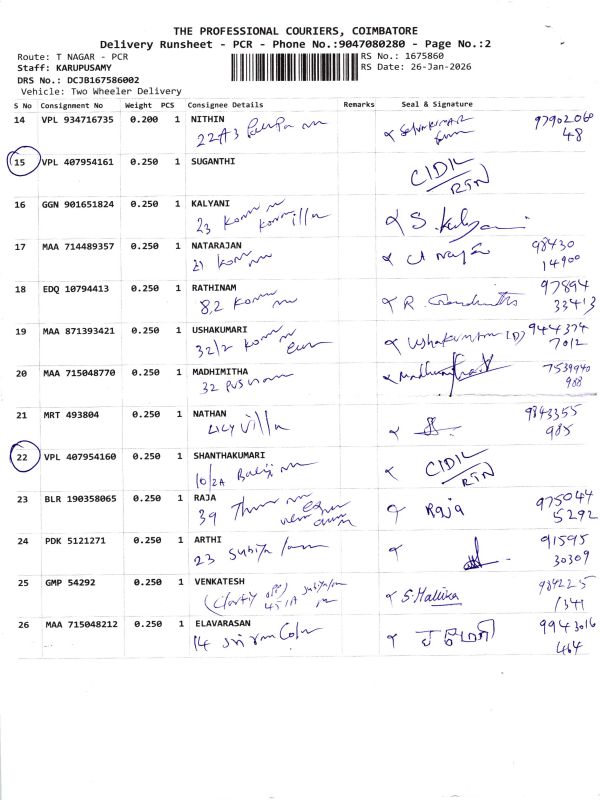 THE PROFESSIONAL COURIERS, COIMBATORE
Delivery Runsheet - PCR - Phone No.:9047080280 - Page No.:2
Route: T NAGAR - PCR
RS No.: 1675860
Staff: KARUPUSAMY
RS Date: 26-Jan-2026
DRS No.: DCJB167586002
Vehicle: Two Wheeler Delivery
S No Consignment No Weight PCS Consignee Details Remarks Seal & Signature
14 VPL 934716735 0.200 1 NITHIN
22A3
97902060
48
15 VPL 407954161 0.250 1 SUGANTHI
CIDIL
RTN
16 GGN 901651824 0.250 1 KALYANI
23
S. Kalyani
17 MAA 714489357 0.250 1 NATARAJAN
21
98430
14900
18 EDQ 10794413 0.250 1 RATHINAM
8,2
R.
97894
33413
19 MAA 871393421 0.250 1 USHAKUMARI
32/2
Ushakumari (D) 944374
7012
20 MAA 715048770 0.250 1 MADHIMITHA
32
7539940
988
21 MRT 493804 0.250 1 NATHAN
Lily Villa
9843355
985
22 VPL 407954160 0.250 1 SHANTHAKUMARI
10/2A
CIDIL
RTN
23 BLR 190358065 0.250 1 RAJA
39
Raja
975044
5292
24 PDK 5121271 0.250 1 ARTHI
23
91595
30309
25 GMP 54292 0.250 1 VENKATESH
45/A
S. Mallika
984225
1341
26 MAA 715048212 0.250 1 ELAVARASAN
14 Sri ram
9943016
464